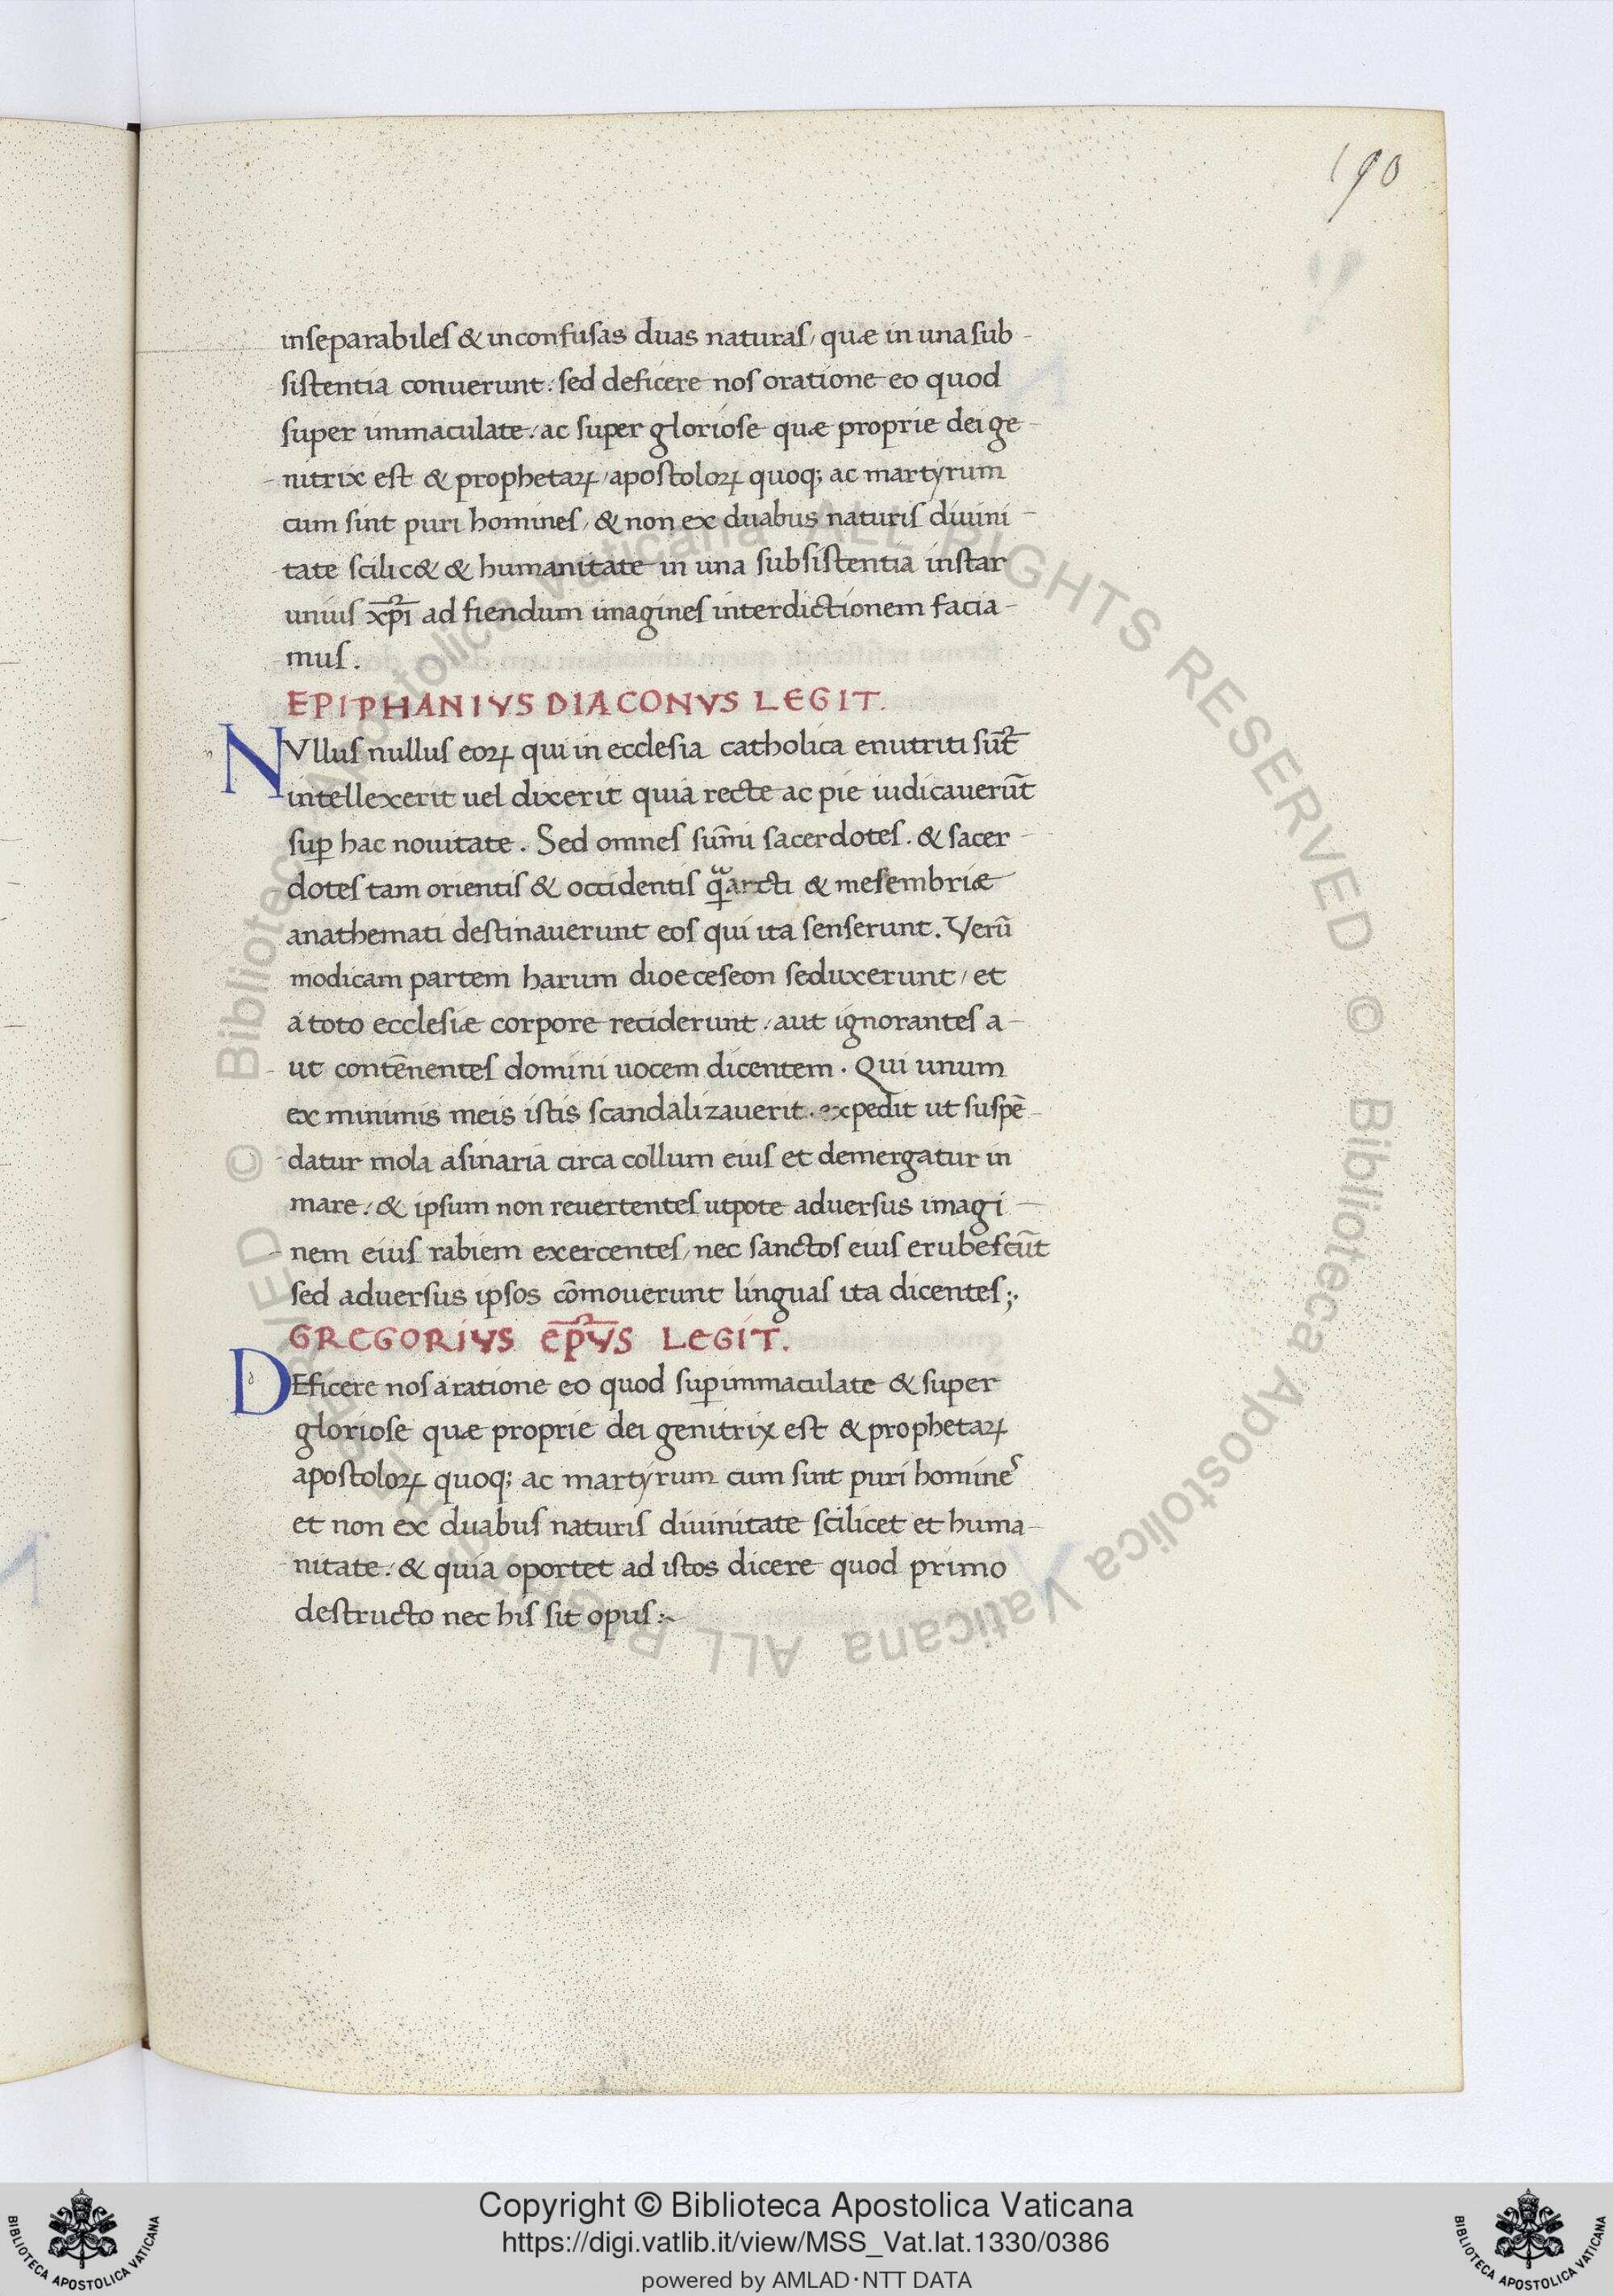 190
inseparabiles & inconfusas duas naturas, quæ in una sub-
sistentia conuerunt. sed deficere nos oratione eo quod
super immaculate. ac super gloriose quæ proprie dei ge-
nitrix est & prophetaꝝ, apostoloꝝ quoq; ac martyrum
cum sint puri homines, & non ex duabus naturis diuini-
tate scilic& & humanitate in una subsistentia instar
unius xp̄i ad fiendum imagines interdictionem facia-
mus.
EPIPHANIVS DIACONVS LEGIT.
NVllus nullus eoꝝ qui in ecclesia catholica enutriti sūt
intellexerit uel dixerit quia recte ac pie iudicauerūt
suꝑ hac nouitate. Sed omnes sum̄i sacerdotes. & sacer-
dotes tam orientis & occidentis arcti & mesembriæ
anathemati destinauerunt eos qui ita senserunt. Verū
modicam partem harum dioeceseon seduxerunt, et
a toto ecclesiæ corpore reciderunt. aut ignorantes a-
ut contēnentes domini uocem dicentem. Qui unum
ex minimis meis istis scandalizauerit. expedit ut suspē-
datur mola asinaria circa collum eius et demergatur in
mare. & ipsum non reuertentes utpote aduersus imagi-
nem eius rabiem exercentes, nec sanctos eius erubescūt
sed aduersus ipsos cōmouerunt linguas ita dicentes;.
GREGORIVS EP̄VS LEGIT.
DEficere nos a ratione eo quod suꝑimmaculate & super
gloriose quæ proprie dei genitrix est & prophetaꝝ
apostoloꝝ quoq; ac martyrum cum sint puri homines
et non ex duabus naturis diuinitate scilicet et huma-
nitate. & quia oportet ad istos dicere quod primo
destructo nec his sit opus:~
© Biblioteca Apostolica Vaticana ALL RIGHTS RESERVED © Biblioteca Apostolica Vaticana ALL RIGHTS RESERVED
Copyright © Biblioteca Apostolica Vaticana
https://digi.vatlib.it/view/MSS_Vat.lat.1330/0386
powered by AMLAD·NTT DATA
BIBLIOTECA APOSTOLICA VATICANA
BIBLIOTECA APOSTOLICA VATICANA